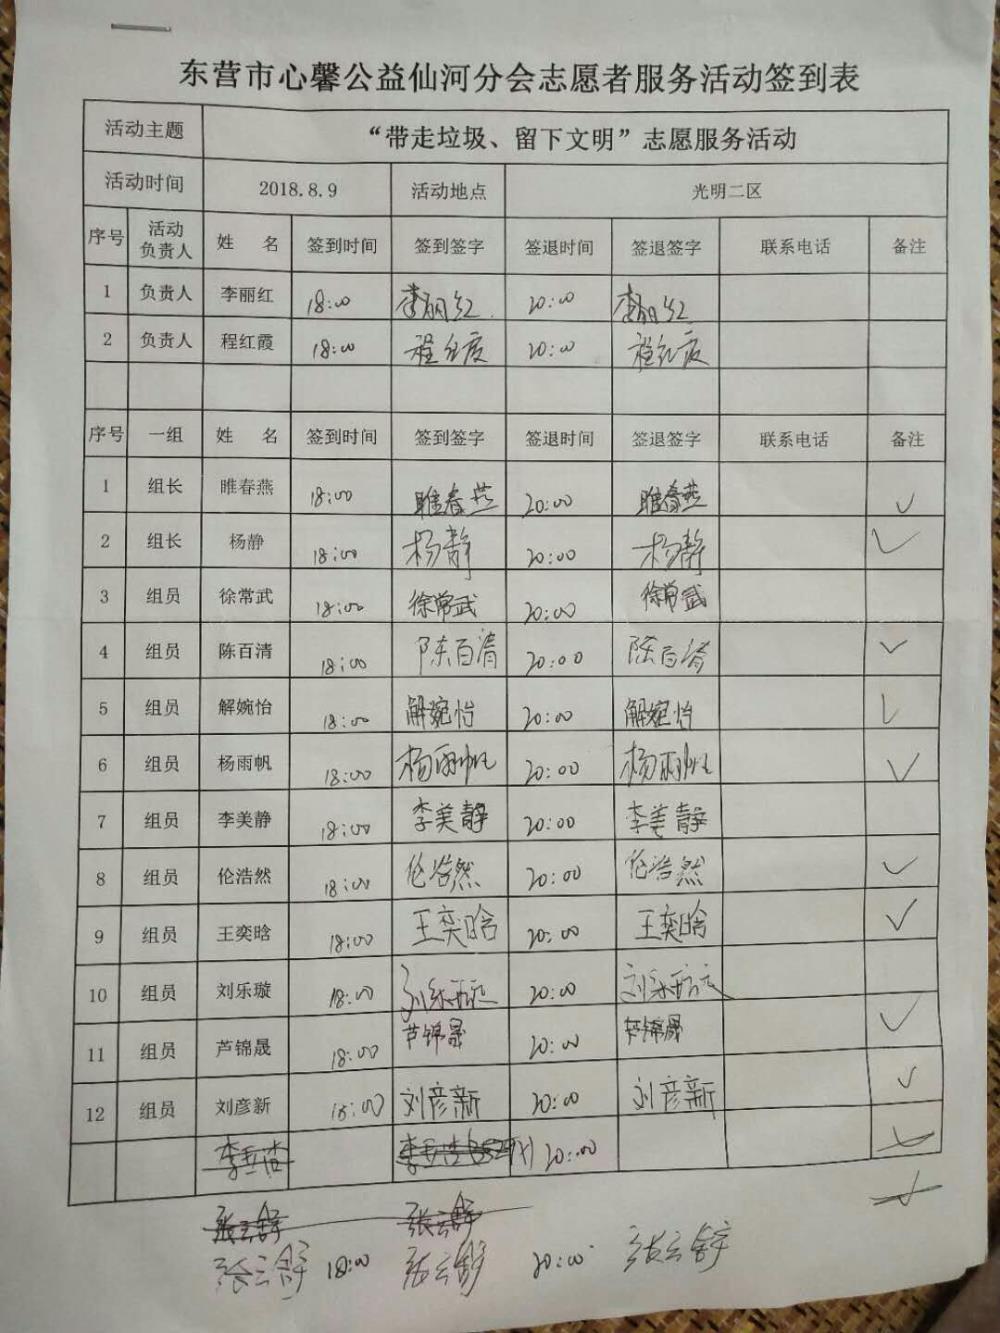 东营市心馨公益仙河分会志愿者服务活动签到表
活动主题 “带走垃圾、留下文明”志愿服务活动
活动时间 2018.8.9 活动地点 光明二区
序号 活动负责人 姓 名 签到时间 签到签字 签退时间 签退签字 联系电话 备注
1 负责人 李丽红 18:00 李丽红 20:00 李丽红
2 负责人 程红霞 18:00 程红霞 20:00 程红霞
序号 一组 姓 名 签到时间 签到签字 签退时间 签退签字 联系电话 备注
1 组长 睢春燕 18:00 睢春燕 20:00 睢春燕 ✓
2 组长 杨静 18:00 杨静 20:00 杨静 ✓
3 组员 徐常武 18:00 徐常武 20:00 徐常武
4 组员 陈百清 18:00 陈百清 20:00 陈百清 ✓
5 组员 解婉怡 18:00 解婉怡 20:00 解婉怡 ✓
6 组员 杨雨帆 18:00 杨雨帆 20:00 杨雨帆 ✓
7 组员 李美静 18:00 李美静 20:00 李美静
8 组员 伦浩然 18:00 伦浩然 20:00 伦浩然 ✓
9 组员 王奕晗 18:00 王奕晗 20:00 王奕晗 ✓
10 组员 刘乐璇 18:00 刘乐璇 20:00 刘乐璇
11 组员 芦锦晟 18:00 芦锦晟 20:00 芦锦晟 ✓
12 组员 刘彦新 18:00 刘彦新 20:00 刘彦新 ✓
20:00
张云舒 张云舒
张云舒 18:00 张云舒 20:00 张云舒